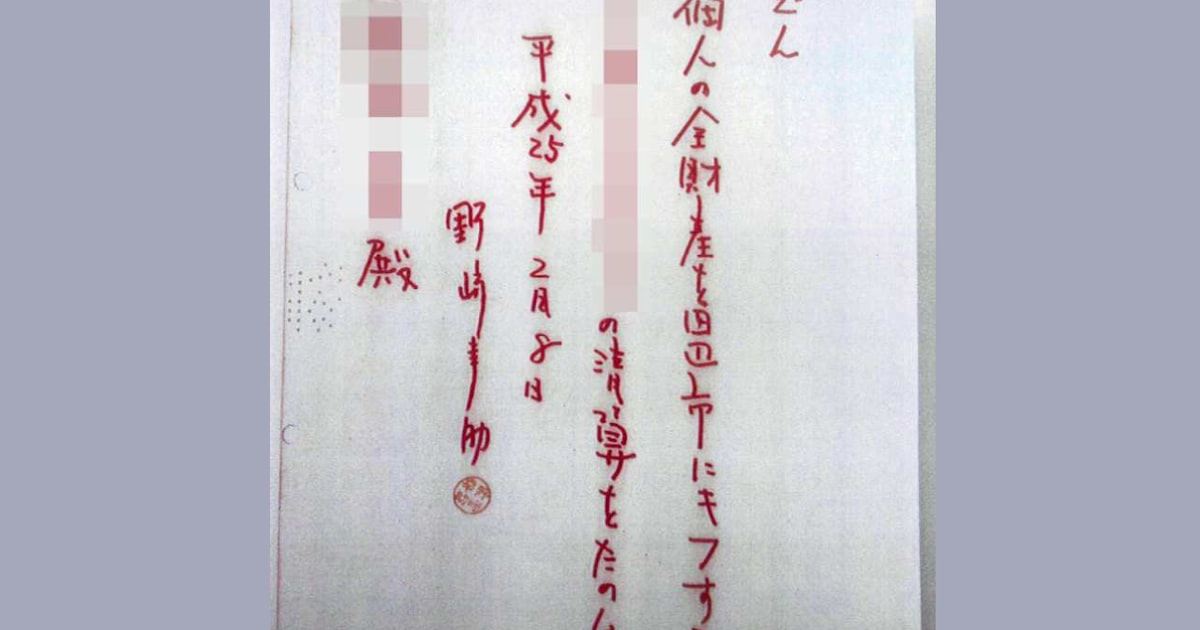 ごん
個人の全財産を田辺市にキフす
の清算をたのん
平成25年2月8日
野崎幸助
殿